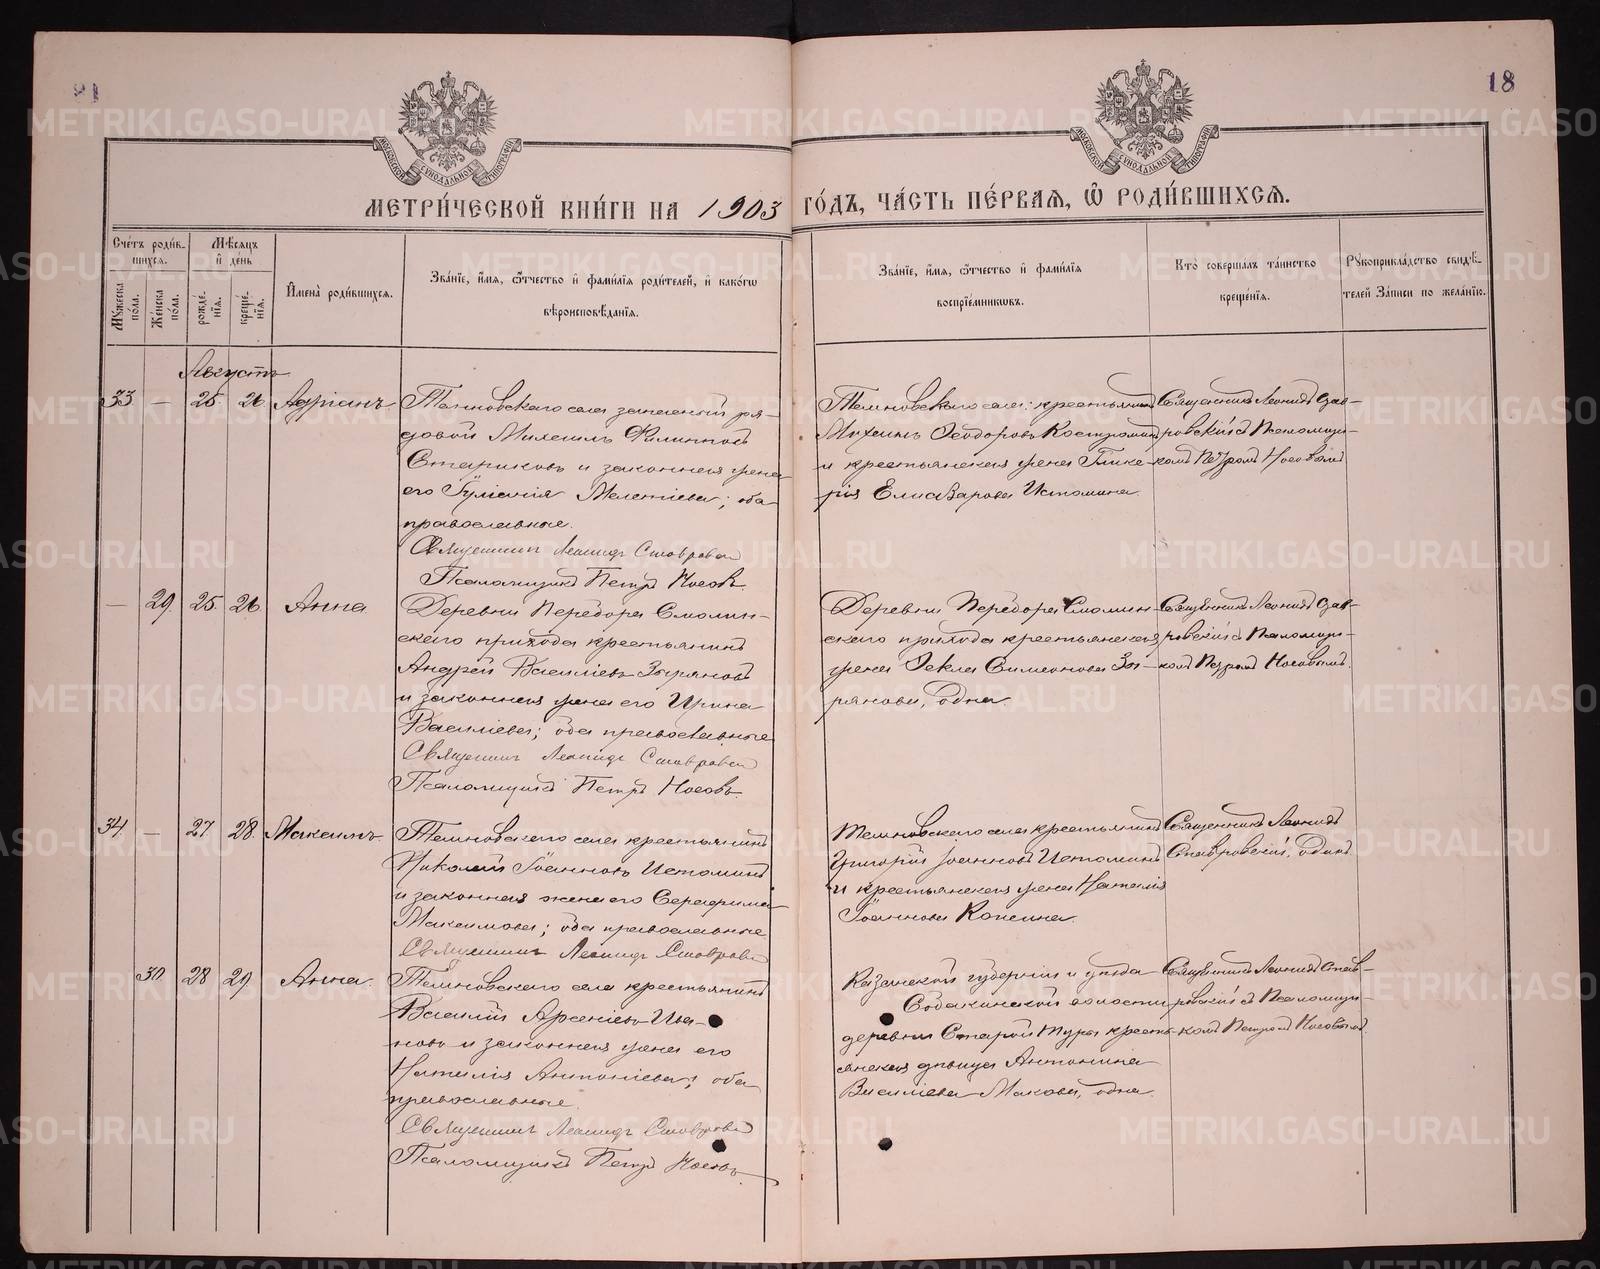 18
МЕТРИ́ЧЕСКОЙ КНИ́ГИ НА 1903 ГО́ДЪ, ЧА́СТЬ ПЕ́РВАЯ, Ѡ҆ РОДИ́ВШИХСЯ.
МОСКОВСКОЙ СѴНОДАЛЬНОЙ ТИПОГРАФІИ
МОСКОВСКОЙ СѴНОДАЛЬНОЙ ТИПОГРАФІИ
Сче́тъ роди́в-
шихся.
Мꙋ́жеска по́ла.
Же́нска по́ла.
Мѣ́сяцъ
и҆ де́нь
рожде́-
нїя.
креще́-
нїя.
И҆мена̀ роди́вшихся.
Зва́нїе, и҆́мя, ѻ҆́тчество и҆ фами́лїя роди́телей, и҆ како́гѡ
вѣроисповѣ́данїя.
Зва́нїе, и҆́мя, ѻ҆́тчество и҆ фами́лїя
воспрїе́мниковъ.
Кто̀ соверша́лъ та́инство
креще́нїя.
Рꙋкоприкла́дство свидѣ́-
телей за́писи по жела́нїю.
Августъ
33 — 25 26 Адріанъ
Темновскаго села запасный ря-
довой Михаилъ Филиппов
Стариковъ и законная жена
его Іуліанія Мелетіева; оба
православные.
Священникъ Леонидъ Ставровскій
Псаломщикъ Петръ Носовъ
Темновскаго села: крестьянинъ
Михаилъ Ѳеодоровъ Костромин
и крестьянская жена Глике-
рія Елиазарова Истомина.
Священникъ Леонидъ Став-
ровскій съ Псаломщи-
комъ Петромъ Носовымъ
— 29. 25. 26. Анна
Деревни Передора Смолин-
скаго прихода крестьянинъ
Андрей Василіевъ Зыряновъ
и законная жена его Ирина
Василіева; оба православные
Священникъ Леонидъ Ставровскій
Псаломщикъ Петръ Носовъ.
Деревни Передора Смолин-
скаго прихода крестьянская
жена Ѳекла Симеонова Зы-
рянова, одна.
Священникъ Леонидъ Став-
ровскій съ Псаломщи-
комъ Петромъ Носовымъ.
34 — 27 28. Максимъ
Темновскаго села крестьянинъ
Николай Іоанновъ Истоминъ
и законная жена его Серафима
Максимова; оба православные
Священникъ Леонидъ Ставровскій
Темновскаго села крестьянинъ
Григорій Іоанновъ Истоминъ
и крестьянская жена Наталія
Іоаннова Копеина.
Священникъ Леонидъ
Ставровскій, одинъ
30 28 29 Анна.
Темновскаго села крестьянинъ
Василій Арсеніевъ Ива-
новъ и законная жена его
Наталія Антоніева; оба
православные.
Священникъ Леонидъ Ставровскій
Псаломщикъ Петръ Носовъ.
Казанской губерніи и уѣзда
Собакинской волости
деревни Старой Туры кресть-
янская дѣвица Антонина
Василіева Макова, одна.
Священникъ Леонидъ Став-
ровскій съ Псаломщи-
комъ Петромъ Носовымъ
METRIKI.GASO-URAL.RU